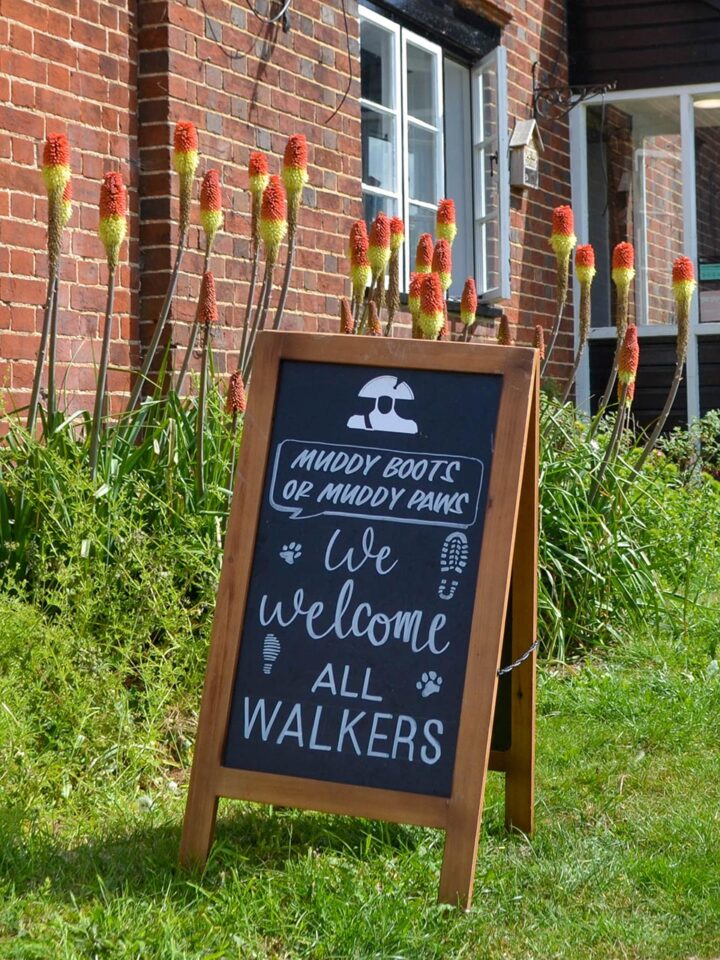 MUDDY BOOTS
OR MUDDY PAWS
We
welcome
ALL
WALKERS